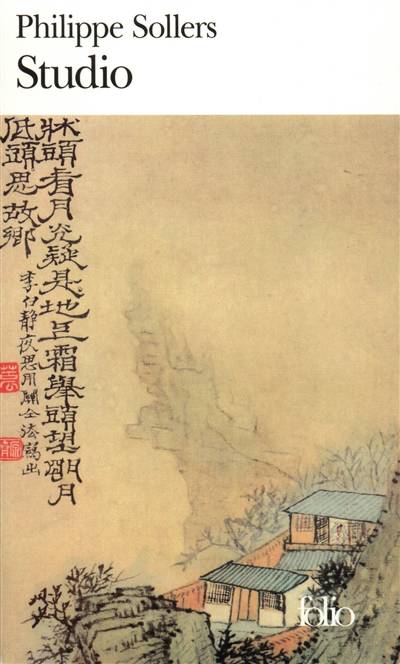 Philippe Sollers
Studio
牀頭看月光疑是地上霜舉頭望明月
低頭思故鄉
李白靜夜思用關仝法寫出
folio